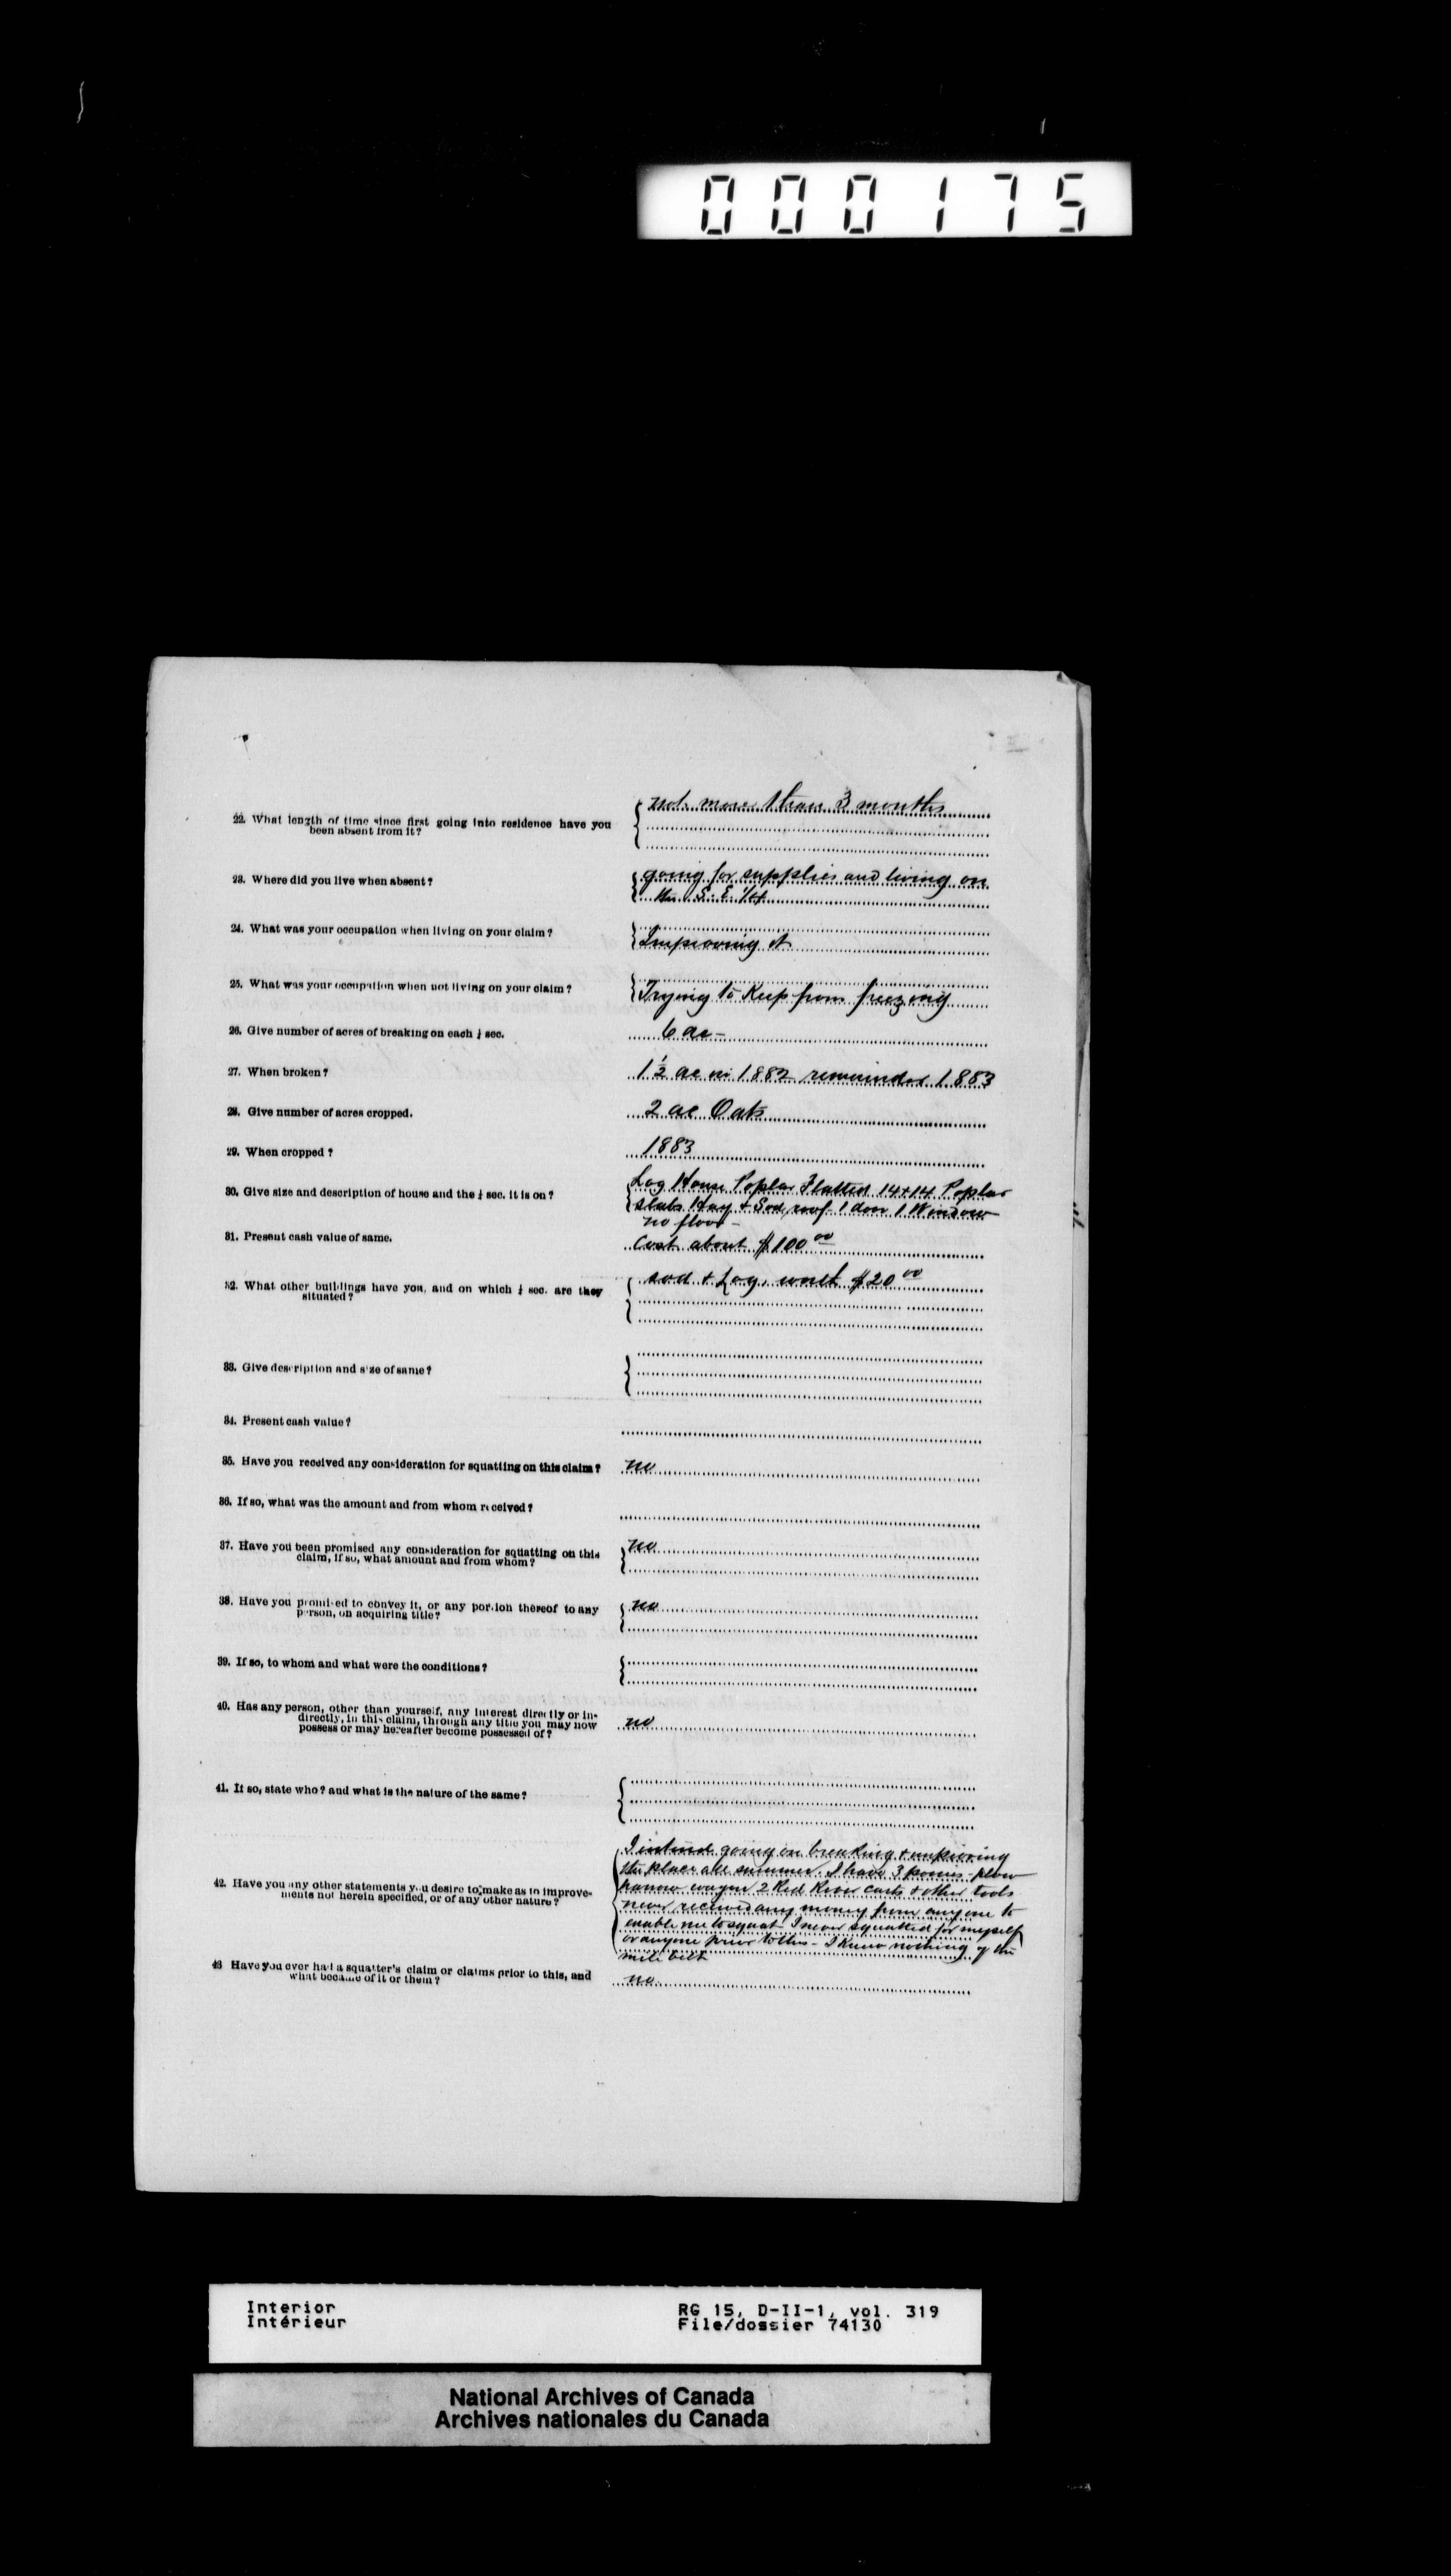 000175
22. What length of time since first going into residence have you
been absent from it?
not more than 3 months
23. Where did you live when absent?
going for supplies and living on
the S. E. 1/4
24. What was your occupation when living on your claim?
Improving it
25. What was your occupation when not living on your claim?
Trying to Keep from freezing
26. Give number of acres of breaking on each ¼ sec.
6 ac -
27. When broken?
1½ ac in 1882 remainder 1883
28. Give number of acres cropped.
2 ac Oats
29. When cropped?
1883
30. Give size and description of house and the ¼ sec. it is on?
Log House Poplar Flatted 14 x 14 Poplar
slabs Hay & Sod roof 1 door 1 Window
no floor -
31. Present cash value of same.
Cost about $100 00
32. What other buildings have you, and on which ¼ sec. are they
situated?
sod & Log, worth $20 00
33. Give description and size of same?
34. Present cash value?
35. Have you received any consideration for squatting on this claim?
no
36. If so, what was the amount and from whom received?
37. Have you been promised any consideration for squatting on this
claim, if so, what amount and from whom?
no
38. Have you promised to convey it, or any portion thereof to any
person, on acquiring title?
no
39. If so, to whom and what were the conditions?
40. Has any person, other than yourself, any interest directly or in-
directly, in this claim, through any title you may now
possess or may hereafter become possessed of?
no
41. If so, state who? and what is the nature of the same?
42. Have you any other statements you desire to make as to improve-
ments not herein specified, or of any other nature?
I intend going on breaking & improving
the place all summer. I have 3 ponies - plow
harrow wagon 2 Red River carts & other tools
never received any money from anyone to
enable me to squat I never squatted for myself
or anyone prior to this - I knew nothing of the
mile belt
43 Have you ever had a squatter's claim or claims prior to this, and
what became of it or them?
no
Interior
Intérieur
RG 15, D-II-1, vol. 319
File/dossier 74130
National Archives of Canada
Archives nationales du Canada